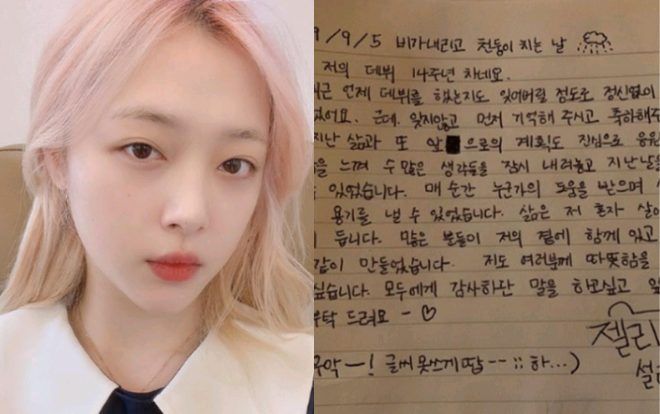 9/9/5 비가내리고 천둥이 치는 날
저의 데뷔 14주년 차네요.
근 언제 데뷔를 했는지도 잊어버릴 정도로 정신없이
없어요. 근데, 잊지않고 먼저 기억해 주시고 축하해주
지난 삶과 또 앞으로의 계획도 진심으로 응원
을 느껴 수 많은 생각들을 잠시 내려놓고 지난날을
도 있었습니다. 매 순간 누군가의 도움을 받으며
용기를 낼 수 있었습니다. 삶은 저 혼자 살
듭니다. 많은 분들이 저의 곁에 함께 있고
같이 만들었습니다. 저도 여러분께 따뜻함을
싶습니다. 모두에게 감사하단 말을 하고싶고 앞
부탁 드려요 - ♡
젤리
설
구악-! 글씨 못쓰게땁-- ;; 하...)